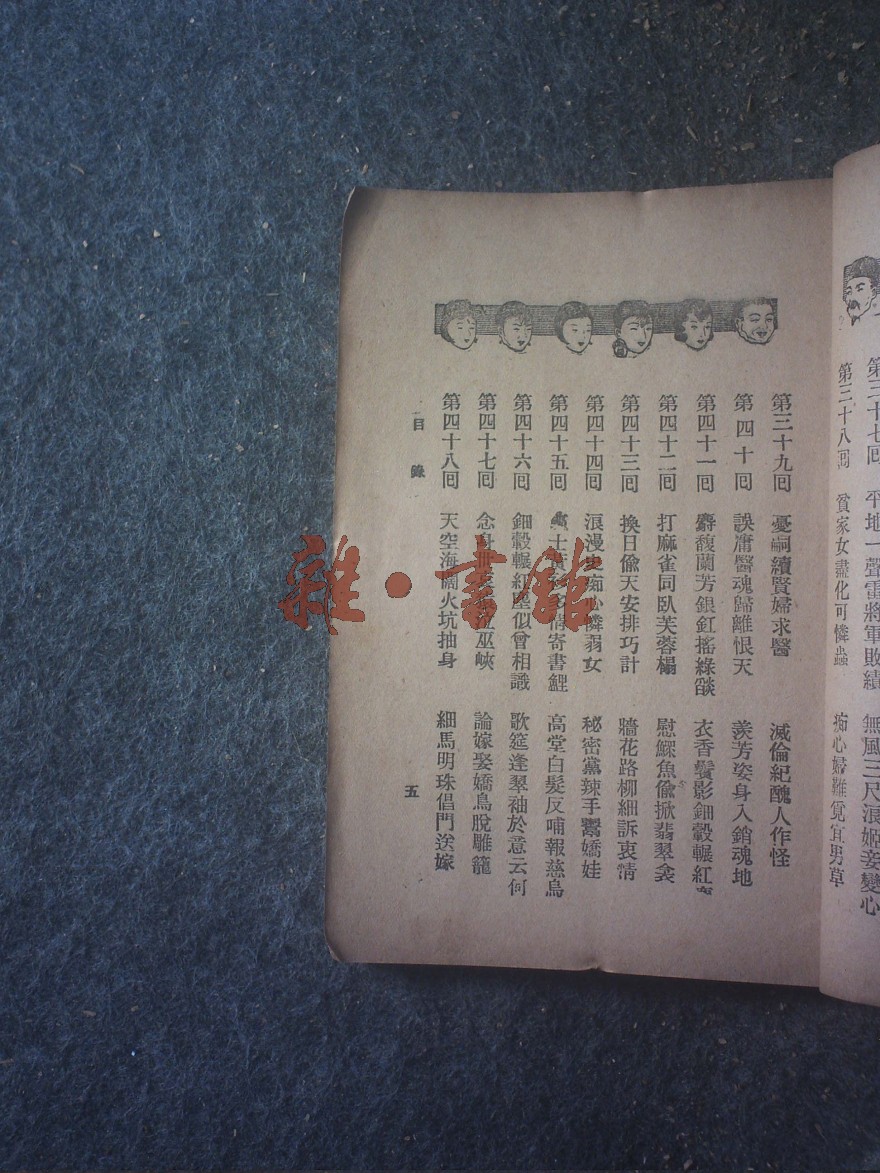 第三十七回 平地一聲雷將軍敗績 無風三尺浪姬妾變心
第三十八回 貧家女盡化可憐蟲 痴心婦難覓宜男草
第三十九回 憂嗣續賢婦求醫 滅倫紀醜人作怪
第四十回 誤庸醫魂歸離恨天 羨芳姿身入銷魂地
第四十一回 麝馥蘭芳銀釭搖綠燄 衣香鬢影鈿轂輾紅
第四十二回 打麻雀同臥芙蓉榻 慰鰥魚偸掀翡翠衾
第四十三回 換日偸天安排巧計 牆花路柳細訴衷情
第四十四回 浪漫史痴心憐弱女 秘密黨辣手鬻嬌娃
第四十五回 士 情寄書鯉 高堂白髮反哺報慈烏
第四十六回 鈿轂輾紅塵似曾相識 歌筵逢翠袖於意云何
第四十七回 念身世 巫峽 論嫁娶嬌鳥脫雕籠
第四十八回 天空海闊火坑抽身 細馬明珠倡門送嫁
目錄
五
雜·書館